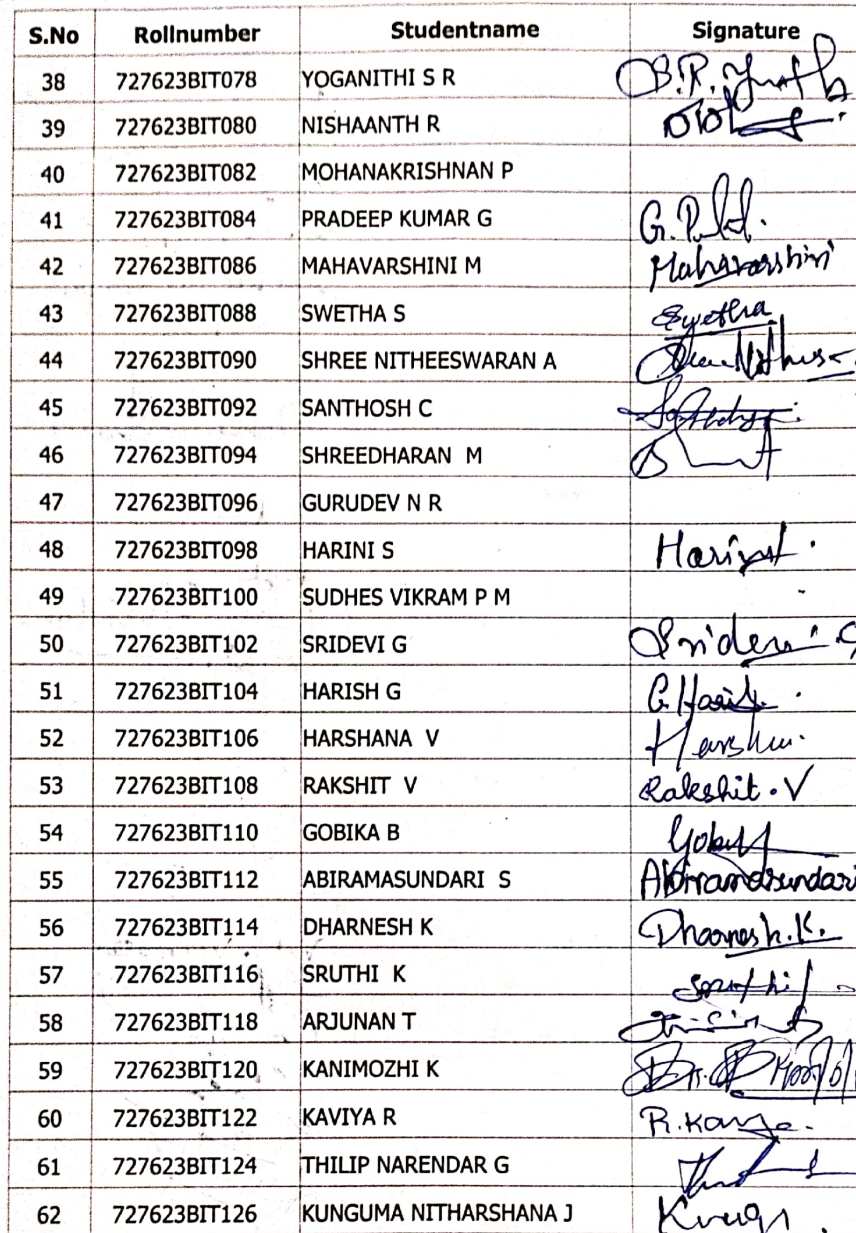 S.No Rollnumber Studentname Signature
38 727623BIT078 YOGANITHI S R
39 727623BIT080 NISHAANTH R
40 727623BIT082 MOHANAKRISHNAN P
41 727623BIT084 PRADEEP KUMAR G
42 727623BIT086 MAHAVARSHINI M Mahavarshini
43 727623BIT088 SWETHA S Swetha
44 727623BIT090 SHREE NITHEESWARAN A
45 727623BIT092 SANTHOSH C
46 727623BIT094 SHREEDHARAN M
47 727623BIT096 GURUDEV N R
48 727623BIT098 HARINI S
49 727623BIT100 SUDHES VIKRAM P M
50 727623BIT102 SRIDEVI G Sridevi G
51 727623BIT104 HARISH G G Harish
52 727623BIT106 HARSHANA V
53 727623BIT108 RAKSHIT V Rakshit. V
54 727623BIT110 GOBIKA B
55 727623BIT112 ABIRAMASUNDARI S Abiramasundari
56 727623BIT114 DHARNESH K Dharnesh.K.
57 727623BIT116 SRUTHI K Sruthi
58 727623BIT118 ARJUNAN T
59 727623BIT120 KANIMOZHI K
60 727623BIT122 KAVIYA R
61 727623BIT124 THILIP NARENDAR G
62 727623BIT126 KUNGUMA NITHARSHANA J